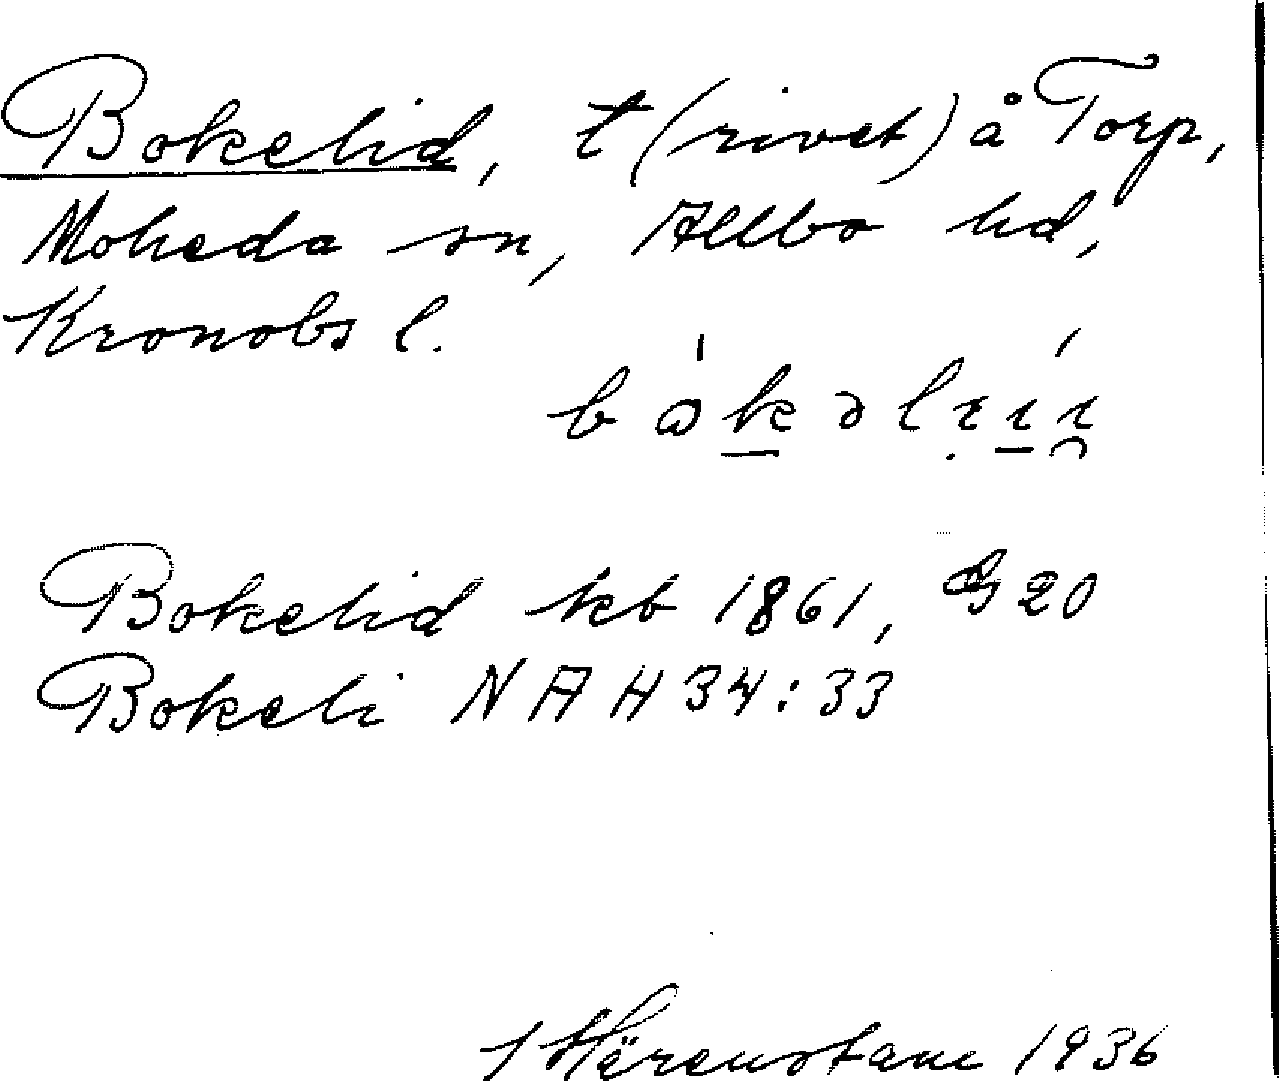 Bokelid, t (rivet) å Torp,
Moheda sn, Allbo hd,
Kronobs l.
Bokelid kb 1861, G 20
Bokeli NAH 34:33
1936